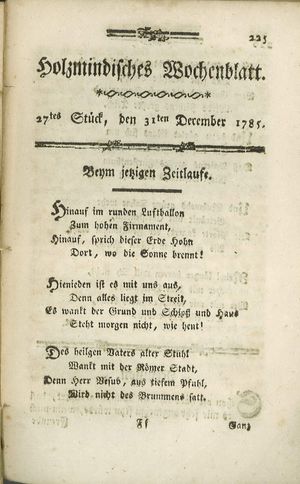 225
Holzmindisches Wochenblatt.
27tes Stück, den 31ten December 1785.
Beym jetzigen Zeitlaufe.
Hinauf im runden Luftballon
Zum hohen Firmament,
Hinauf, sprich dieser Erde Hohn
Dort, wo die Sonne brennt!
Hienieden ist es mit uns aus,
Denn alles liegt im Streit,
Es wankt der Grund und Schloß und Haus
Steht morgen nicht, wie heut!
Des heilgen Vaters alter Stuhl
Wankt mit der Römer Stadt,
Denn Herr Vesuv, aus tiefem Pfuhl,
Wird nicht des Brummens satt.
Ff
Ganz